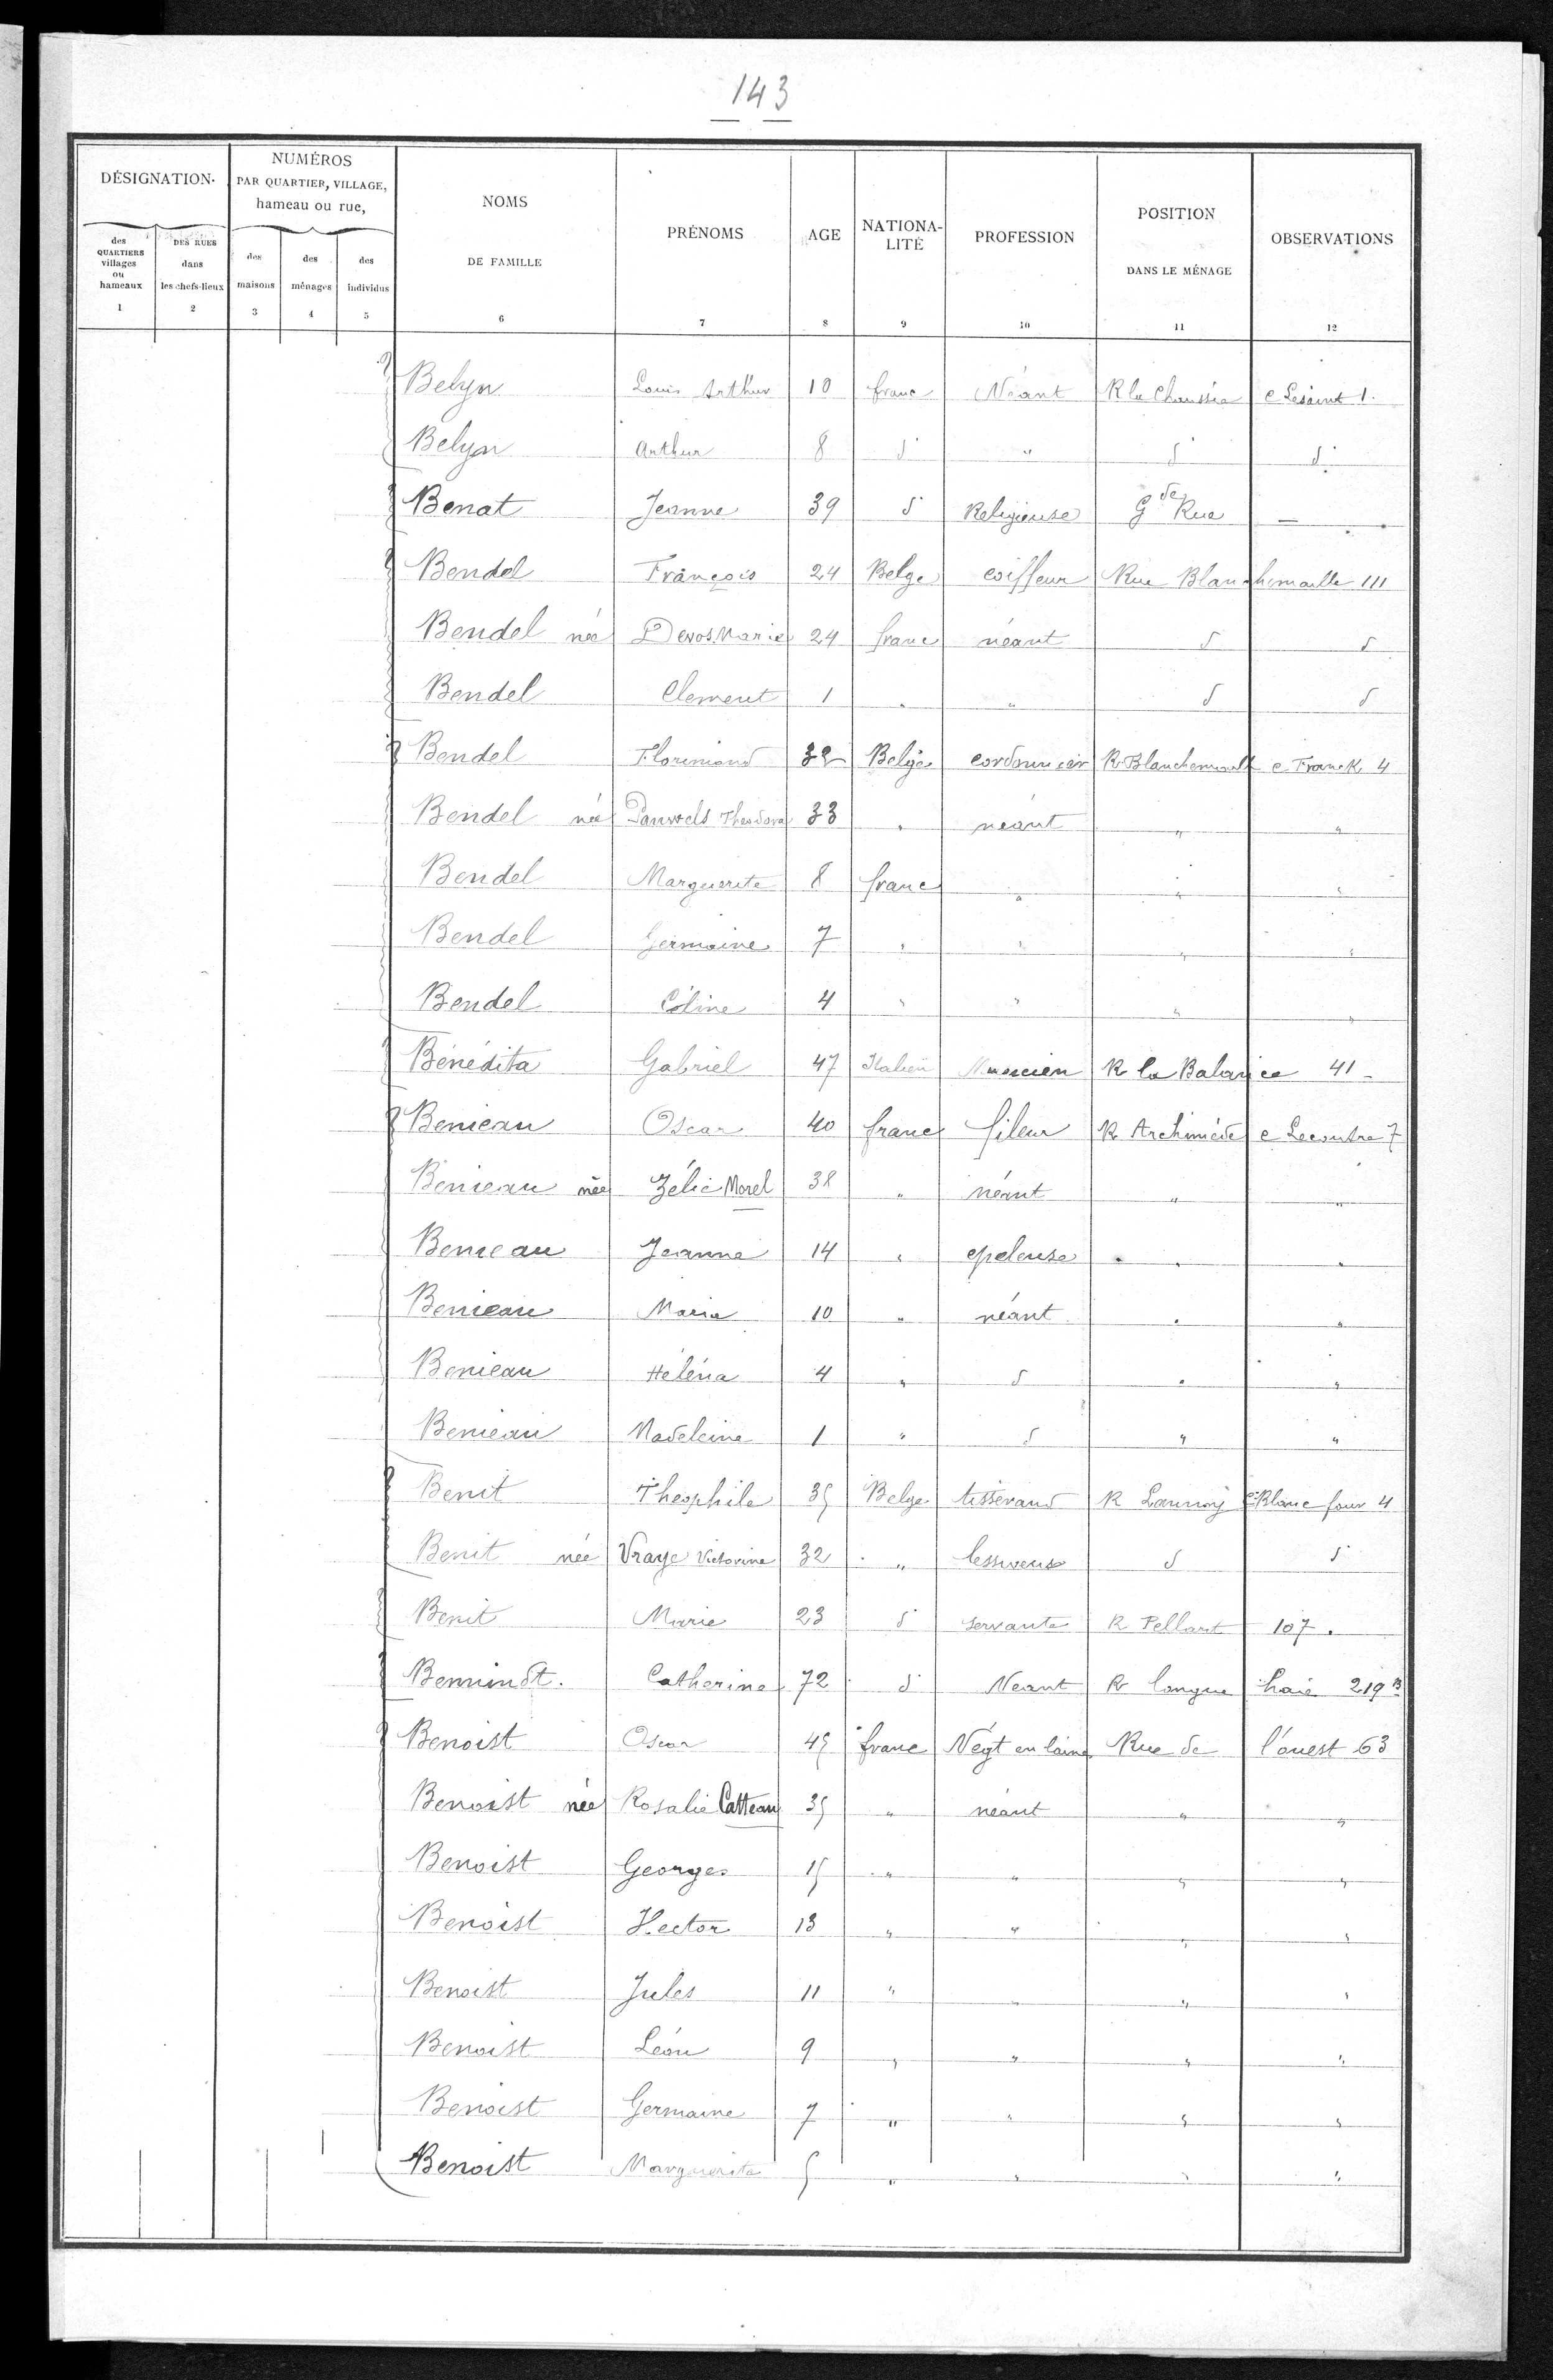 143
DÉSIGNATION.
NUMÉROS
PAR QUARTIER, VILLAGE,
hameau ou rue,
NOMS
DE FAMILLE
PRÉNOMS
AGE
NATIONA-
LITÉ
PROFESSION
POSITION
DANS LE MÉNAGE
OBSERVATIONS
des QUARTIERS villages ou hameaux
DES RUES dans les chefs-lieux
des maisons
des ménages
des individus
1 2 3 4 5 6 7 8 9 10 11 12
Belyn Louis Arthur 10 franc Néant R la Chaussée c Lesaint 1.
Belyn Arthur 8 d° " d° d°
Benat Jeanne 39 d° Religieuse Gde Rue —
Bendel François 24 Belge coiffeur Rue Blanchemaille 111
Bendel née Devos Marie 24 franc néant d d
Bendel Clement 1 " " d d
Bendel Florimond 32 Belge cordonnier R Blanchemaille c Franck 4
Bendel née Pauwels Theodora 33 " néant " "
Bendel Marguerite 8 franc " " "
Bendel Germaine 7 " " " "
Bendel Céline 4 " " " "
Bénédita Gabriel 47 Italien Musicien R la Balance 41 -
Benieau Oscar 40 franc fileur R Archimède c Lecontre 7
Benieau née Zélie Morel 38 " néant " "
Benieau Jeanne 14 " epeleuse " "
Benieau Maria 10 " néant " "
Benieau Héléna 4 " d " "
Benieau Madeleine 1 " d " "
Benit Théophile 35 Belge tisserand R Lannoy c Blanc four 4
Benit née Vraye Victorine 32 " lessiveuse d d°
Benit Marie 23 d° servante R Pellart 107.
Catherine 72 d° Neant R longue haie 219 B
Benoist Oscar 45 franc Négt en laine Rue de l'ouest 63
Benoist née Rosalie Catteau 35 " néant " "
Benoist Georges 15 " " " "
Benoist Hector 13 " " " "
Benoist Jules 11 " " " "
Benoist Léon 9 " " " "
Benoist Germaine 7 " " " "
Benoist Marguerite 5 " " " "